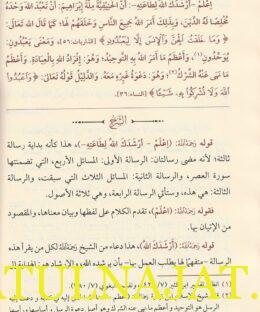 اِعْلَمْ – أَرْشَدَكَ اللهُ لِطَاعَتِهِ–: أَنَّ الحَنِيفِيَّةَ مِلَّةَ إِبْرَاهِيمَ: أَنْ تَعْبُدَ اللهَ وَحْدَهُ
مُخْلِصًا لَهُ الدِّينَ، وَبِذَلِكَ أَمَرَ اللهُ جَمِيعَ النَّاسِ وَخَلَقَهُمْ لَهَا؛ كَمَا قَالَ اللهُ تَعَالَى:
﴿وَمَا خَلَقْتُ الْجِنَّ وَالْإِنسَ إِلَّا لِيَعْبُدُونِ﴾ [الذاريات:٥٦]، وَمَعْنَى يَعْبُدُونِ:
يُوَحِّدُونِ(١)، وَأَعْظَمُ مَا أَمَرَ اللهُ بِهِ التَّوحِيدُ، وَهُوَ: إِفْرَادُ اللهِ بِالْعِبَادَةِ. وَأَعْظَمُ
مَا نَهَى عَنْهُ الشِّرْكُ(٢)؛ وَهُوَ: دَعْوَةُ غَيْرِهِ مَعَهُ، وَالدَّلِيلُ قَوْلُهُ تَعَالَى: ﴿وَاعْبُدُوا
اللهَ وَلَا تُشْرِكُوا بِهِ شَيْئًا﴾ [النساء:٣٦].
الشرح
قوله رحمه الله: (اِعْلَمْ – أَرْشَدَكَ اللهُ لِطَاعَتِهِ–)، هذا كأنه بداية رسالة
ثالثة؛ لأنه مضى رسالتان: الرسالة الأولى: المسائل الأربع، التي تضمنتها
سورة العصر، والرسالة الثانية: المسائل الثلاث التي سبقت، والرسالة
الثالثة: هي هذه، وستأتي الرسالة الرابعة، وهي ثلاثة الأصول.
فقوله رحمه الله: (اِعْلَمْ)، تقدم الكلام على لفظها وبيان معناها، والمقصود
من الإتيان بها.
قوله رحمه الله: (أَرْشَدَكَ اللهُ)، هذا دعاء من الشيخ رحمه الله لكل من يقرأ هذه
الرسالة – متفهمًا لها يطلب العمل بها– بأن يرشده الله، والإرشاد هو: الهداية إلى
ATULNAJAT.